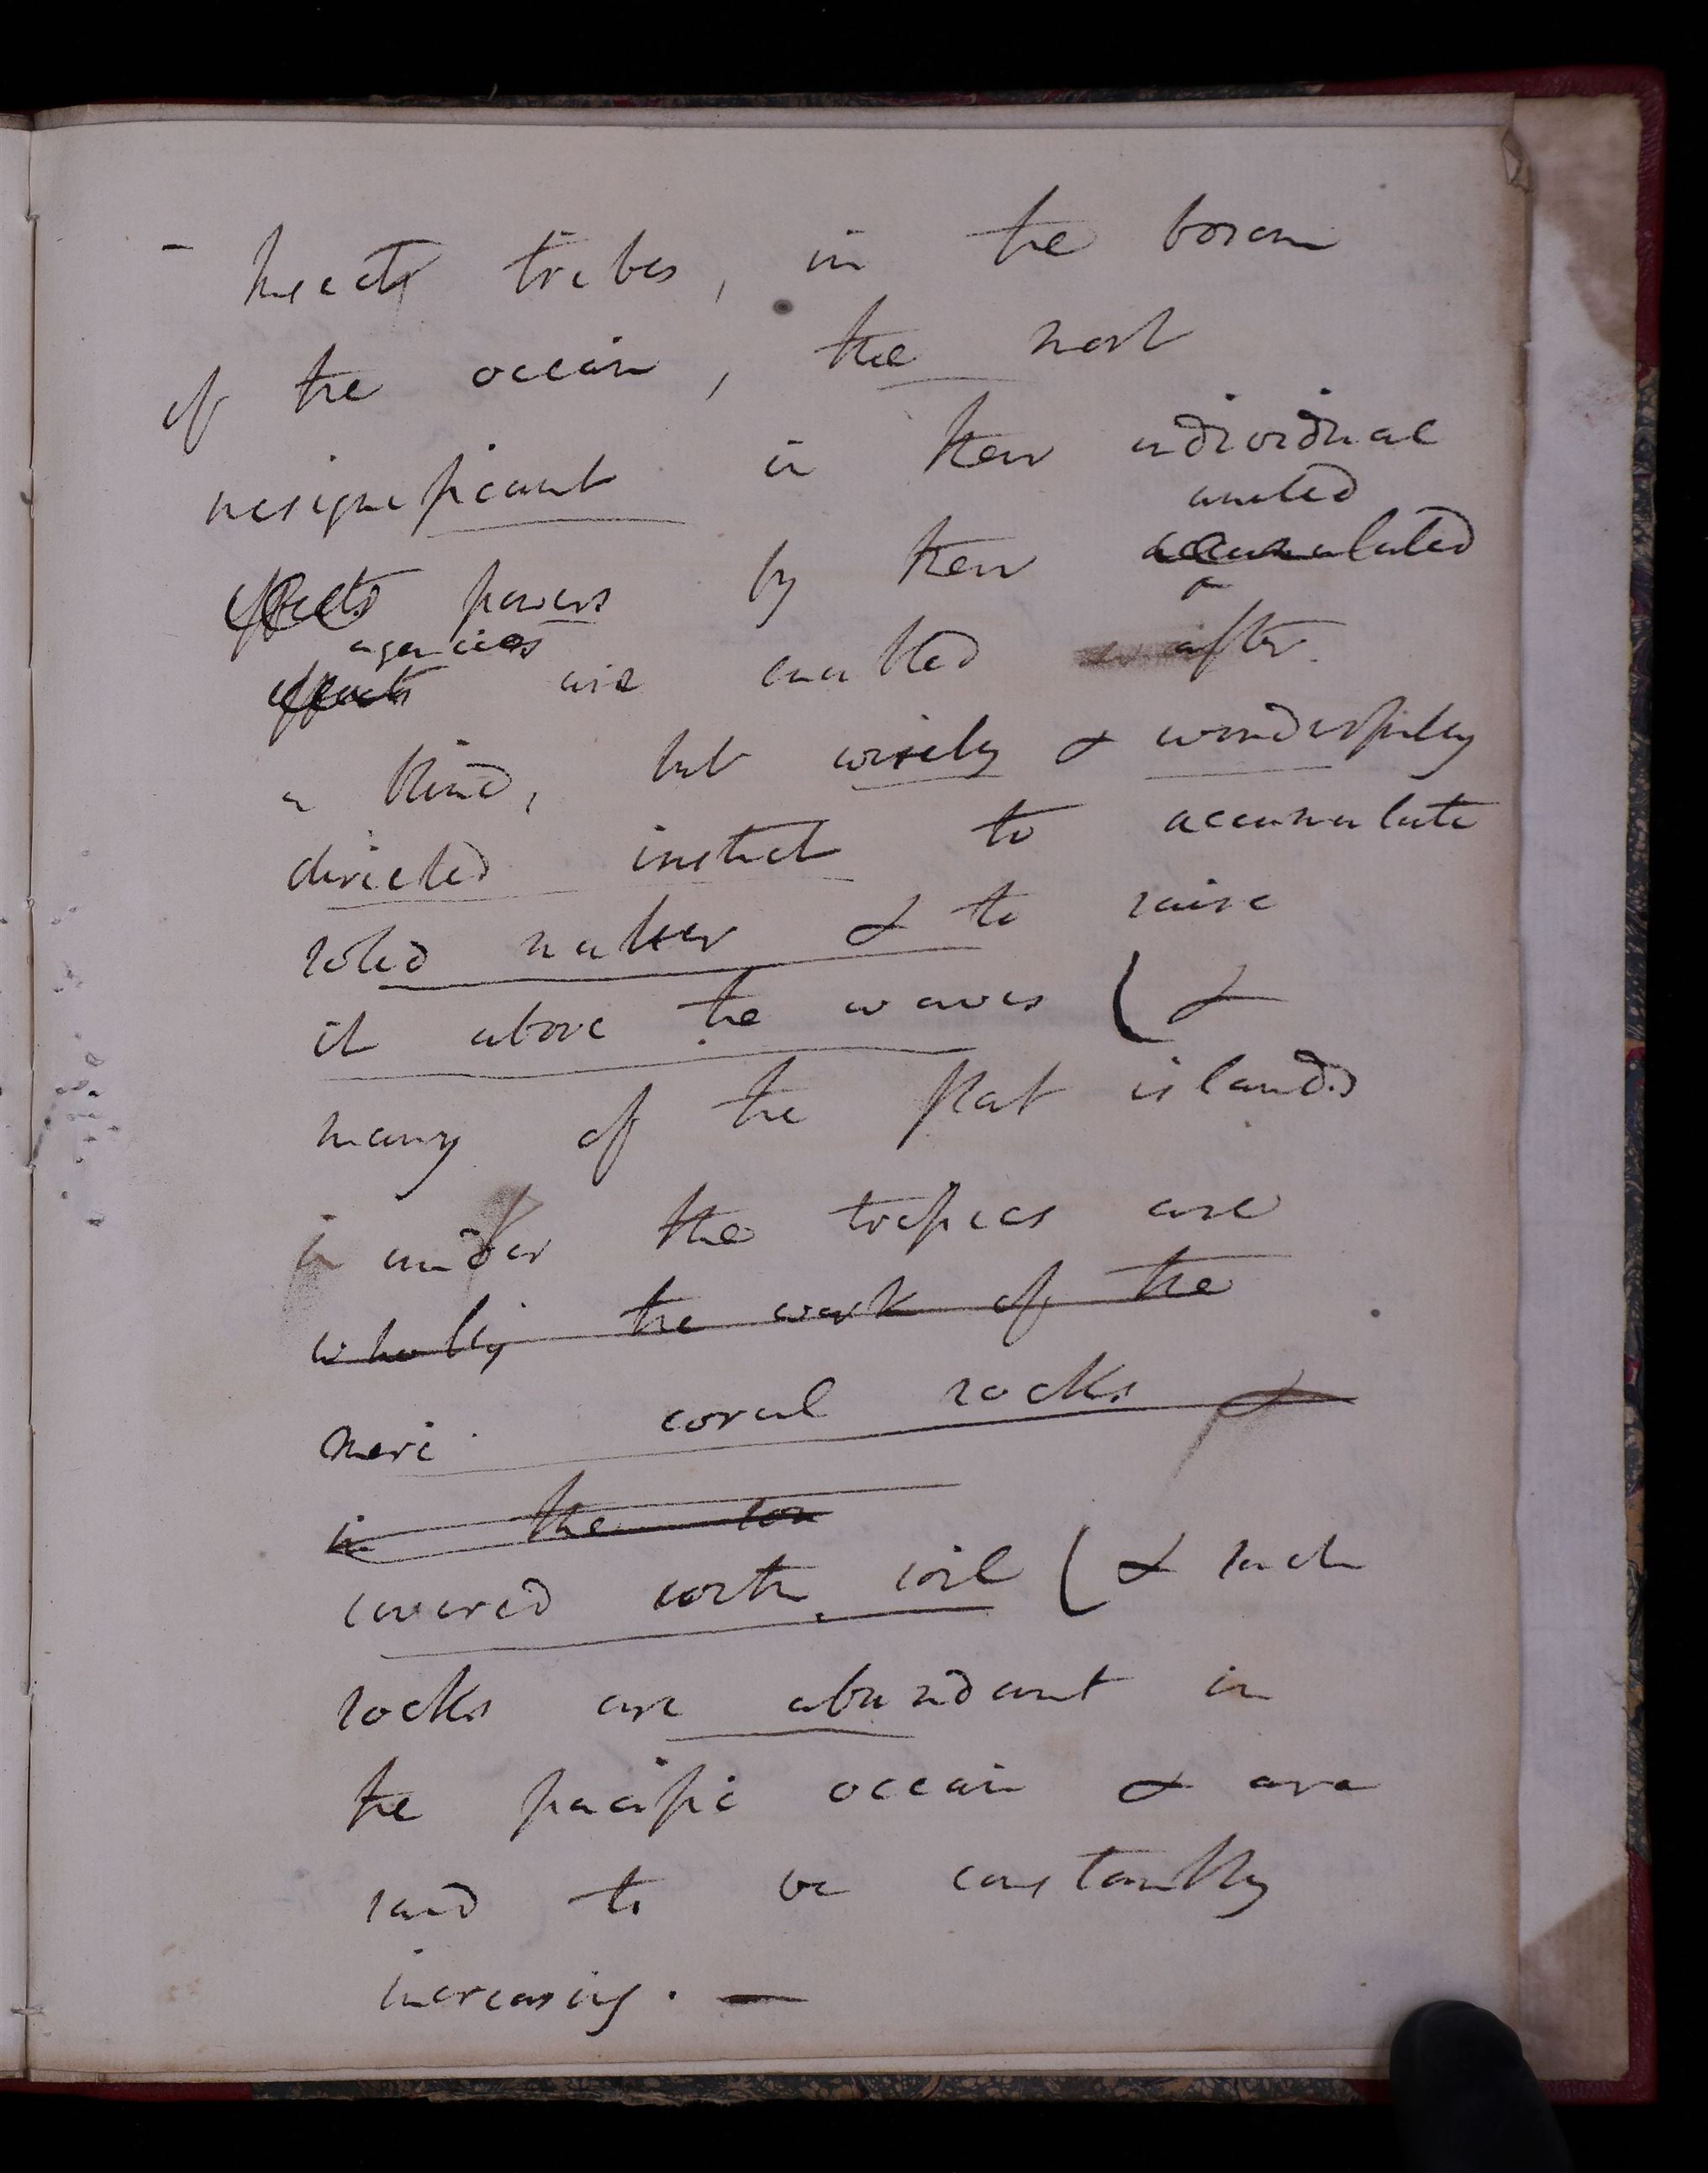 - Insects tribes, in the bosom
of the ocean, the most
insignificant in their individual
united
effects powers by their accumulated
agencies
effects are enabled after
a blind, but wisely & wonderfully
directed instinct to accumulate
solid matter & to raise
it above the waves ( &
many of the flat islands
in under the tropics are
wholly the work of the
mere coral rocks &
in the son
covered with soil ( & such
rocks are abundant in
the pacific ocean & are
said to be constantly
increasing. —